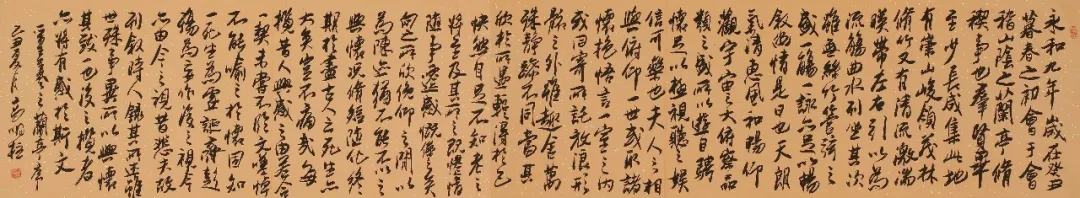 永和九年歲在癸丑
暮春之初會于會
稽山陰之蘭亭脩
禊事也羣賢畢
至少長咸集此地
有崇山峻領茂林
脩竹又有清流激湍
暎帶左右引以為
流觴曲水列坐其次
雖無絲竹管弦之
盛一觴一詠亦足以暢
敘幽情是日也天朗
氣清惠風和暢仰
觀宇宙之大俯察品
類之盛所以遊目騁
懷足以極視聽之娛
信可樂也夫人之相
與俯仰一世或取諸
懷抱悟言一室之內
或因寄所託放浪形
骸之外雖趣舍萬
殊靜躁不同當其
欣於所遇暫得於己
快然自足不知老之
將至及其所之既倦情
隨事遷感慨係之矣
向之所欣俛仰之閒以
為陳迹猶不能不以之
興懷況脩短隨化終
期於盡古人云死生亦
大矣豈不痛哉每
攬昔人興感之由若合
一契未嘗不臨文嗟悼
不能喻之於懷固知
一死生為虛誕齊彭
殤為妄作後之視今
亦由今之視昔悲夫故
列敘時人錄其所述雖
世殊事異所以興懷
其致一也後之攬者
亦將有感於斯文
王羲之蘭亭序